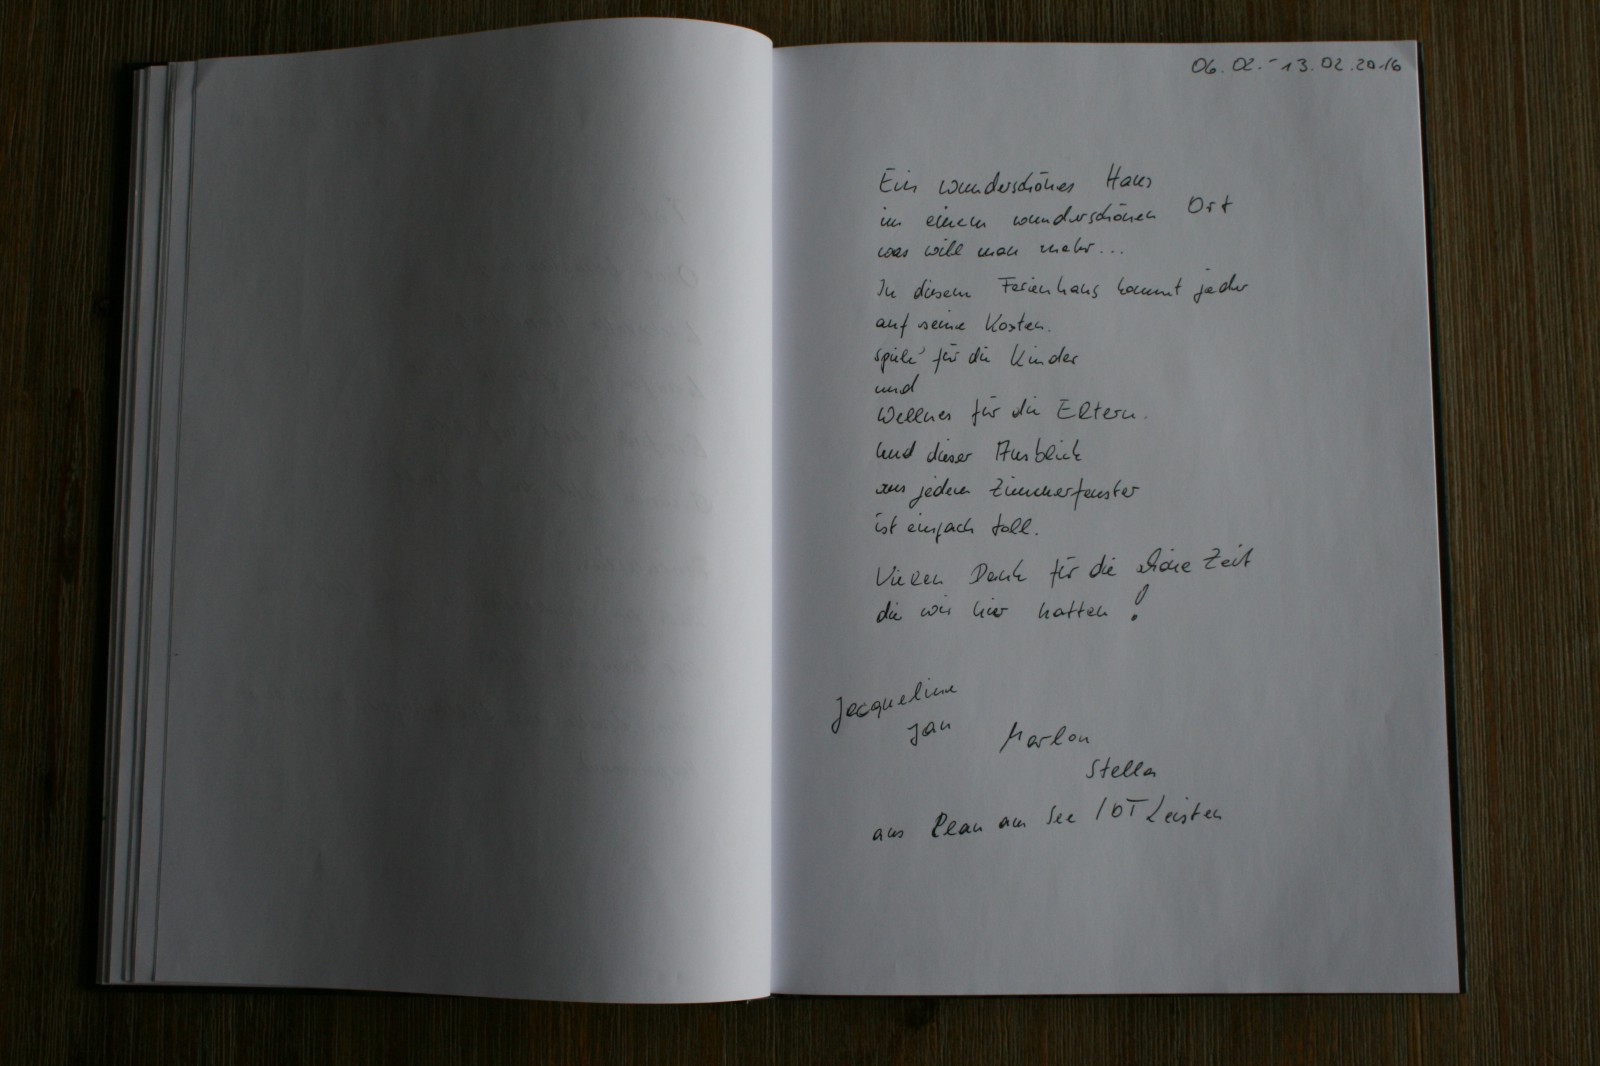 06.02.-13.02.2016
Ein wunderschönes Haus
in einem wunderschönen Ort
was will man mehr...
In diesem Ferienhaus kommt jeder
auf seine Kosten.
spiele für die Kinder
und
Wellnes für die Eltern.
und dieser Ausblick
aus jedem Zimmerfenster
ist einfach toll.
Vielen Dank für die schöne Zeit
die wir hier hatten!
Jacqueline
Jan
Marlon
Stella
aus Plau am See / OT Leisten